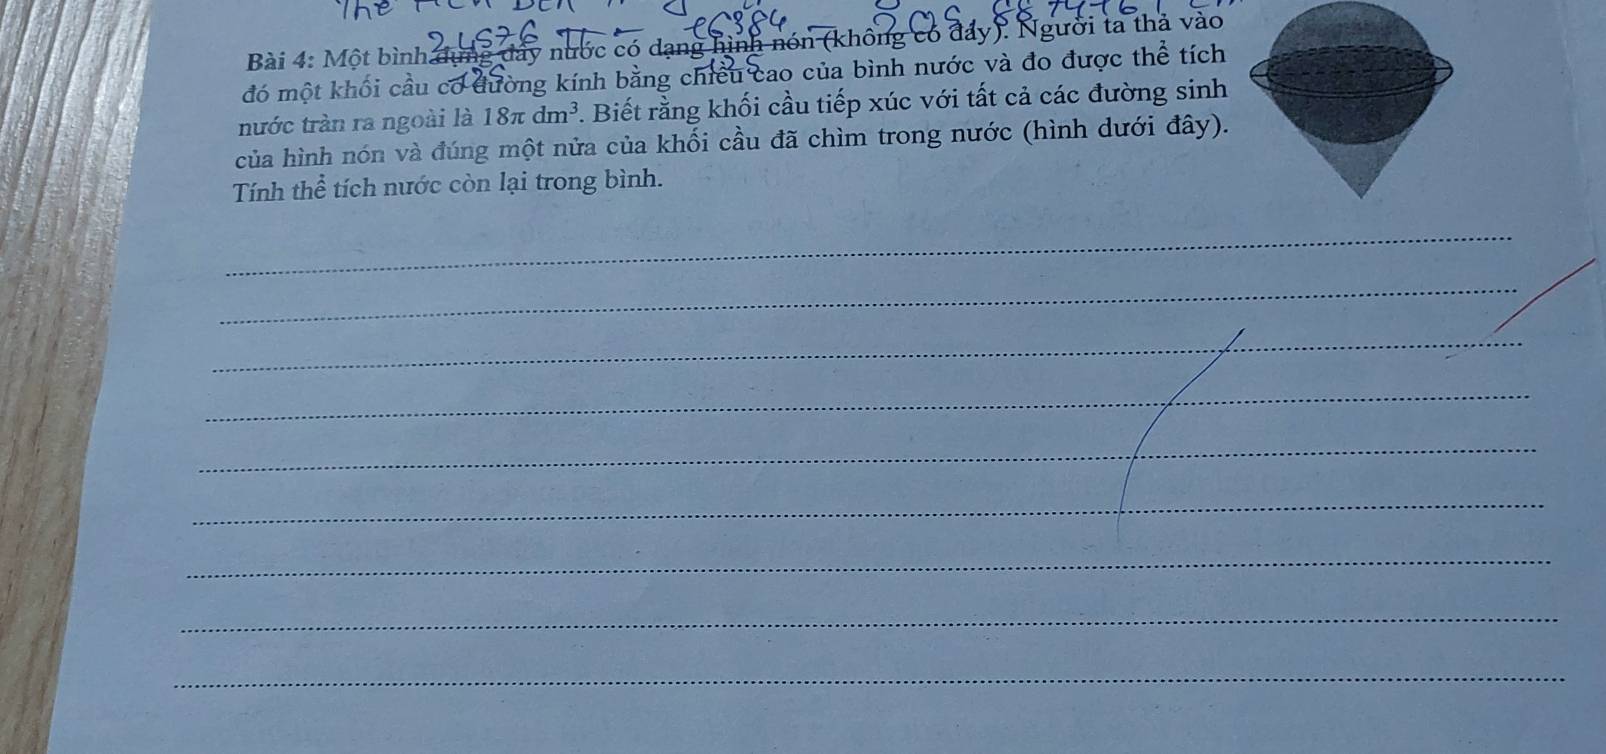 The
2 4576 π 16384 205,887416
Bài 4: Một bình đựng đầy nước có dạng hình nón (không có đáy). Người ta thả vào
đó một khối cầu có đường kính bằng chiều cao của bình nước và đo được thể tích
nước tràn ra ngoài là 18π dm³. Biết rằng khối cầu tiếp xúc với tất cả các đường sinh
của hình nón và đúng một nửa của khối cầu đã chìm trong nước (hình dưới đây).
Tính thể tích nước còn lại trong bình.
125
125